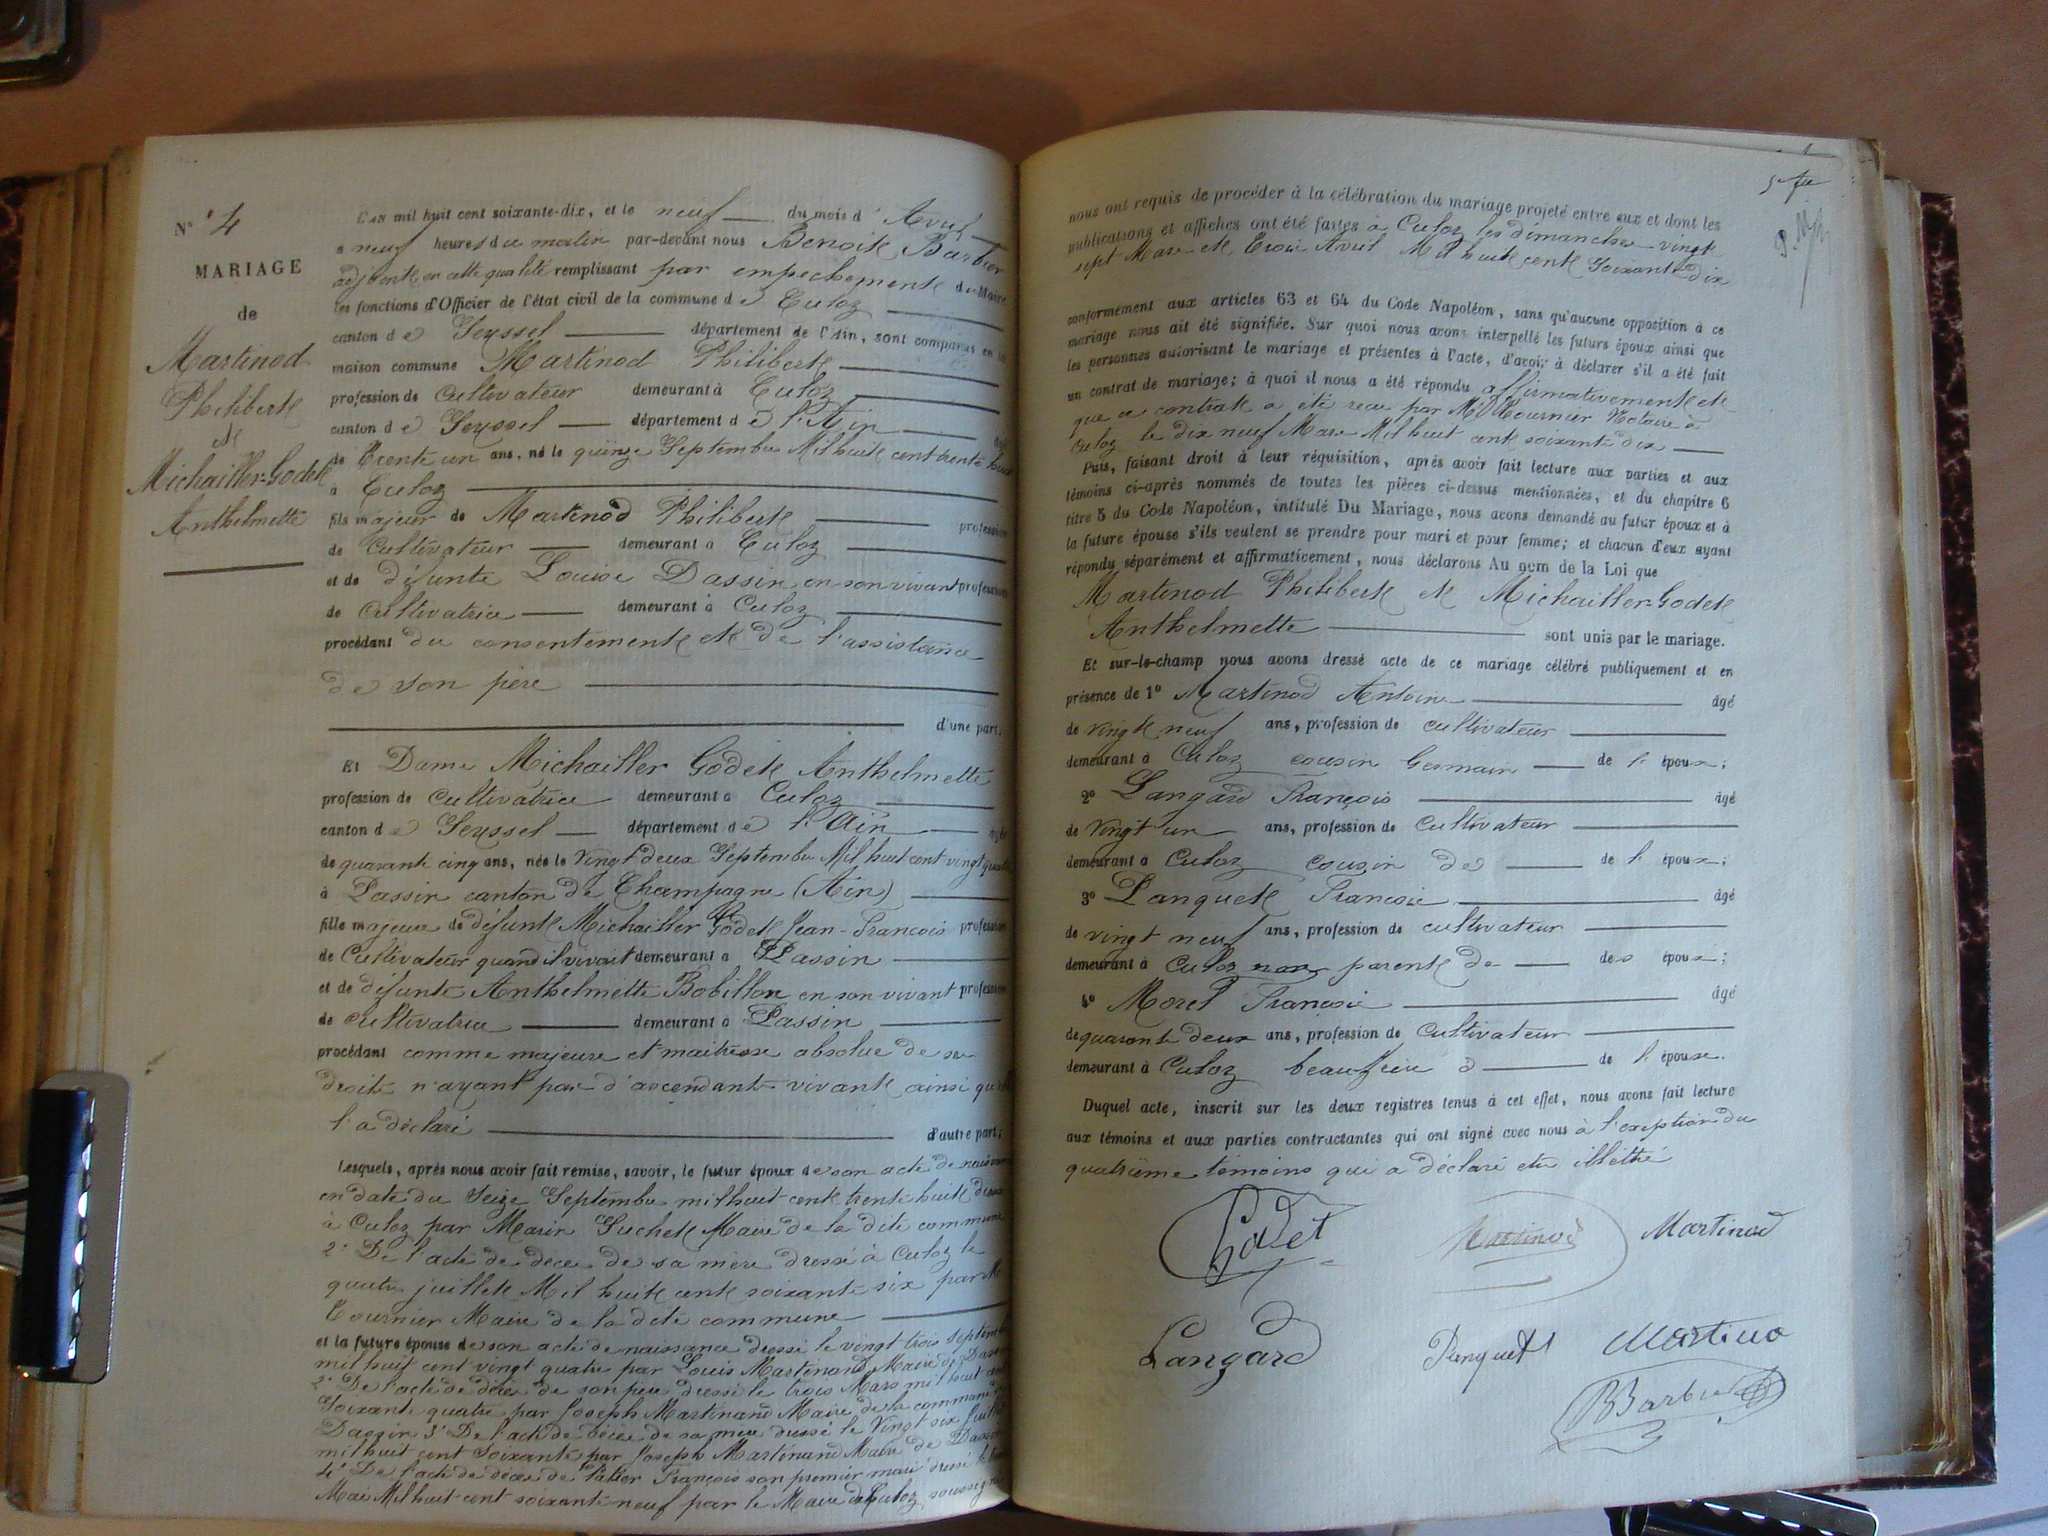 N° 4
MARIAGE
de
Martinod
Philibert
et
Michailler-Godet
Anthelmette
L'AN mil huit cent soixante-dix, et le neuf du mois d'Avril
a neuf heures du matin par-devant nous Benoit Barbier
adjoint en cette qualité remplissant par empechement du Maire
les fonctions d'Officier de l'état civil de la commune de Culoz
canton de Seyssel département de l'Ain, sont comparus en la
maison commune Martinod Philibert
profession de cultivateur demeurant à Culoz
canton de Seyssel département de l'Ain âgé
de Trente un ans, né le quinze Septembre Mil huit cent trente huit
a Culoz
fils majeur de Martinod Philibert profession
de Cultivateur demeurant à Culoz
et de défunte Louise Dassin en son vivant profession
de Cultivatrice demeurant à Culoz
procédant du consentement et de l'assistance
de son père
d'une part.
Et Dame Michailler Godet Anthelmette
profession de Cultivatrice demeurant à Culoz
canton de Seyssel département de l'Ain âgée
de quarante cinq ans, née le vingt deux Septembre Mil huit cent vingt quatre
à Passin canton de Champagne (Ain)
fille majeure de défunt Michailler Godet Jean-François profession
de Cultivateur quand il vivait demeurant a Passin
et de défunte Anthelmette Bobillon en son vivant profession
de cultivatrice demeurant à Passin
procédant comme majeure et maitresse absolue de ses
droits n'ayant pas d'ascendants vivants ainsi qu'elle
l'a déclaré d'autre part;
Lesquels, après nous avoir fait remise, savoir, le futur époux de son acte de naissance
en date du Seize Septembre mil huit cent trente huit dressé
à Culoz par Marin Guchet Maire de la dite commune
2° De l'acte de décès de sa mère dressé à Culoz le
quatre juillet Mil huit cent soixante six par M
Tournier Maire de la dite commune
et la future épouse de son acte de naissance dressé le vingt trois septembre
mil huit cent vingt quatre par Louis Martinand Maire de Passin
2° De l'acte de décès de son père dressé le trois Mars mil huit cent
Soixante quatre par Joseph Martinand Maire de la commune de
Passin 3° De l'acte de décès de sa mère dressé le Vingt six
mil huit cent Soixante par Joseph Martinand Maire de Passin
4° De l'acte de décès de François son premier mari dressé le
Mai Mil huit cent soixante neuf par le Maire de Culoz soussigné
nous ont requis de procéder à la célébration du mariage projeté entre eux et dont les
publications et affiches ont été faites à Culoz les dimanches vingt
sept Mars et Trois Avril Mil huit cent Soixante dix
conformément aux articles 63 et 64 du Code Napoléon, sans qu'aucune opposition à ce
mariage nous ait été signifiée. Sur quoi nous avons interpellé les futurs époux ainsi que
les personnes autorisant le mariage et présentes à l'acte, d'avoir à déclarer s'il a été fait
un contrat de mariage; à quoi il nous a été répondu affirmativement et
que ce contrat a été reçu par Me Tournier Notaire à
Culoz le dix neuf Mars Mil huit cent soixante dix
Puis, faisant droit à leur réquisition, après avoir fait lecture aux parties et aux
témoins ci-après nommés de toutes les pièces ci-dessus mentionnées, et du chapitre 6
titre 5 du Code Napoléon, intitulé Du Mariage, nous avons demandé au futur époux et à
la future épouse s'ils veulent se prendre pour mari et pour femme; et chacun d'eux ayant
répondu séparément et affirmativement, nous déclarons Au nom de la Loi que
Martinod Philibert et Michailler-Godet
Anthelmette sont unis par le mariage.
Et sur-le-champ nous avons dressé acte de ce mariage célébré publiquement et en
présence de 1° Martinod Antoine âgé
de vingt neuf ans, profession de cultivateur
demeurant à Culoz cousin Germain de l'époux;
2° Langard François âgé
de vingt un ans, profession de cultivateur
demeurant à Culoz cousin de de l'époux;
3° Panquet François âgé
de vingt neuf ans, profession de cultivateur
demeurant à Culoz non parent de des époux;
4° Morel François âgé
de quarante deux ans, profession de cultivateur
demeurant à Culoz beau frère d de l'épouse.
Duquel acte, inscrit sur les deux registres tenus à cet effet, nous avons fait lecture
aux témoins et aux parties contractantes qui ont signé avec nous à l'exeption du
quatrième témoins qui a déclaré etre illétré
Godet Martinod Martinod
Langard Panquet Martino
BBarbier